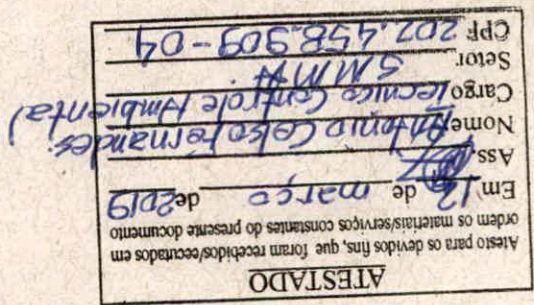 ATESTADO
Atesto para os devidos fins, que foram recebidos/executados em
ordem os materiais/serviços constantes do presente documento
Em 12 de março de 2019
Ass.
Nome Antonio Celso Fernandes
Cargo Tecnico Controle Ambiental
Setor SMMA
CPF 207.458.909-04